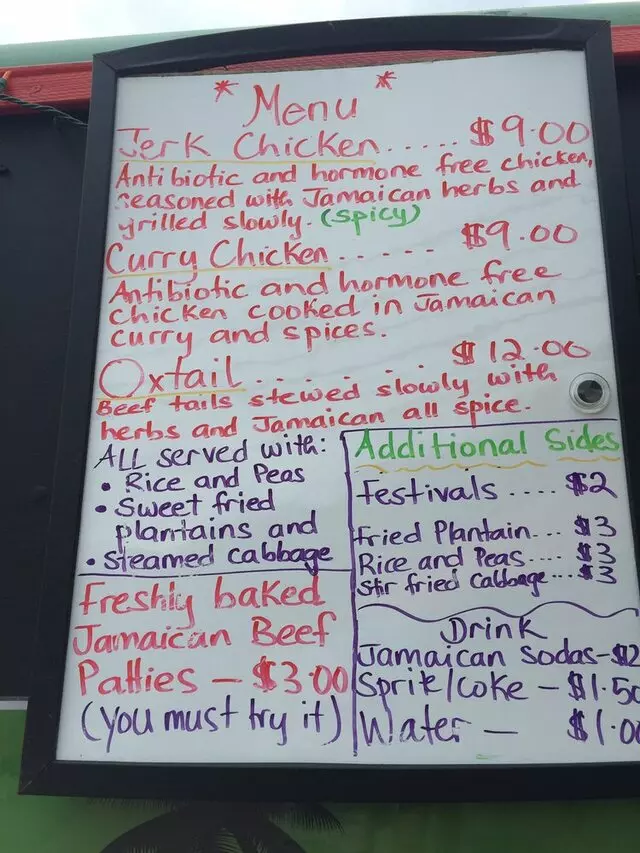 * Menu *
Jerk Chicken..... $9.00
Antibiotic and hormone free chicken,
seasoned with Jamaican herbs and
grilled slowly. (spicy)
Curry Chicken..... $9.00
Antibiotic and hormone free
chicken cooked in Jamaican
curry and spices.
Oxtail...... $12.00
Beef tails stewed slowly with
herbs and Jamaican all spice.
ALL served with:
• Rice and Peas
• Sweet fried
plantains and
• Steamed cabbage
Freshly baked
Jamaican Beef
Patties – $3.00
(you must try it)
Additional Sides
Festivals .... $2
Fried Plantain... $3
Rice and Peas.... $3
Stir fried Cabbage...$3
Drink
Jamaican Sodas–$2
Sprite/coke – $1.50
Water – $1.00